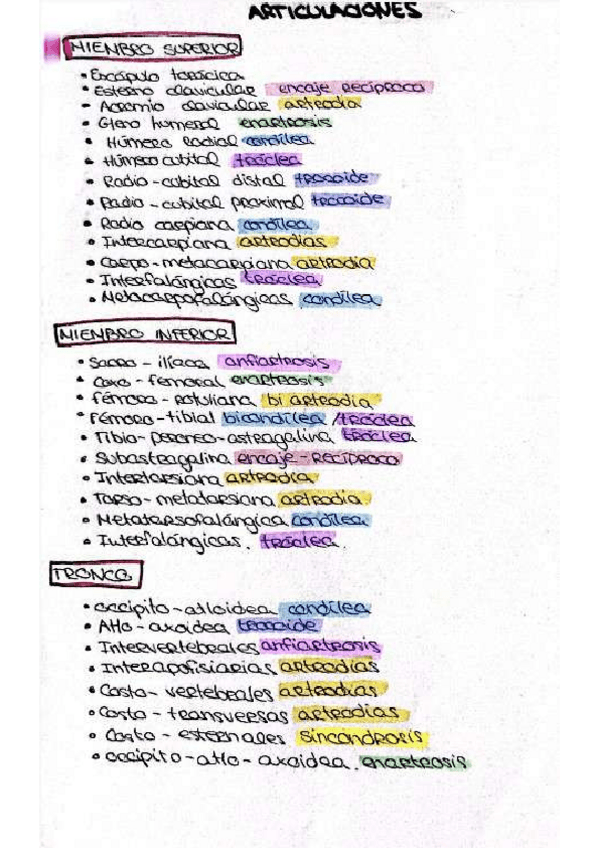 ARTICULACIONES
MIEMBRO SUPERIOR
• Escápulo torácica
• Esterno clavicular encaje recíproco
- Acromio clavicular artrodia
• Gleno humeral enartrosis
• Húmero Radial condílea
• Húmero cubital tróclea
• Radio - cubital distal trocoide
• Radio - cubital proximal trocoide
• Radio carpiana condílea
• Intercarpiana artrodias
• Carpo - metacarpiana artrodia
• Interfalángicas tróclea
• Metacarpofalángicas condílea
MIEMBRO INFERIOR
• Sacro - ilíaca anfiartrosis
• Coxo - femoral enartrosis
• fémoro - rotuliana bi artrodia
• Fémoro - tibial bicondílea / tróclea
• Tibio - peroneo - astragalina tróclea
• Subastragalina encaje - RECÍPROCO
• Intertarsiana artrodia
• Tarso - metatarsiana artrodia
• Metatarsofalángica condílea
• Interfalángicas. tróclea.
TRONCO
• occipito - atloidea condílea
• Atlo - axoidea trocoide
• Intervertebrales anfiartrosis
• Interapofisiarias artrodias
• Costo - vertebrales artrodias
• Costo - transversas artrodias
• Costo - esternales sincondrosis
• occipito - atlo - axoidea. enartrosis